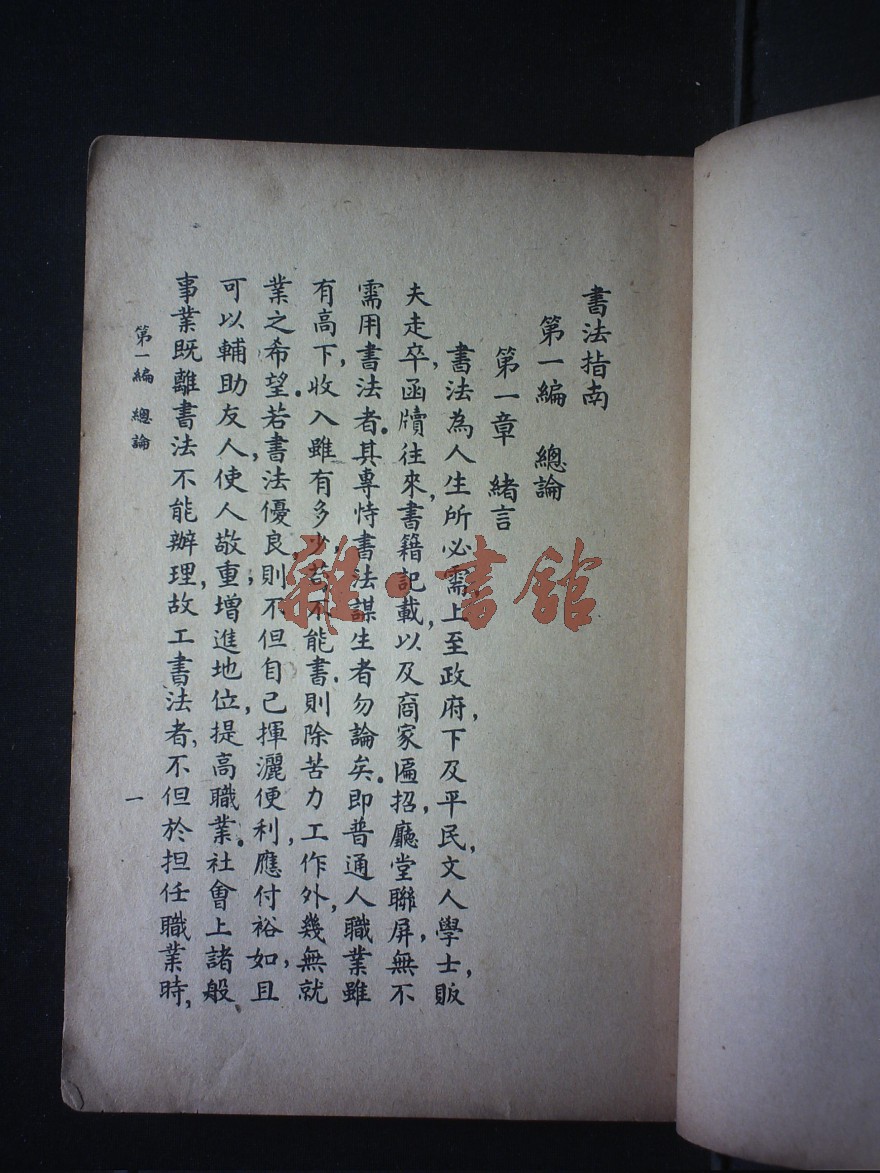 書法指南
第一編　總論
第一章　緒言
書法為人生所必需，上至政府，下及平民，文人學士，販
夫走卒，函牘往來，書籍記載，以及商家匾招，廳堂聯屏，無不
需用書法者。其專恃書法謀生者勿論矣。即普通人職業雖
有高下，收入雖有多少，若不能書，則除苦力工作外，幾無就
業之希望。若書法優良，則不但自己揮灑便利，應付裕如，且
可以輔助友人，使人敬重；增進地位，提高職業。社會上諸般
事業既離書法不能辦理，故工書法者，不但於担任職業時，
第一編　總論
一
雜·書館